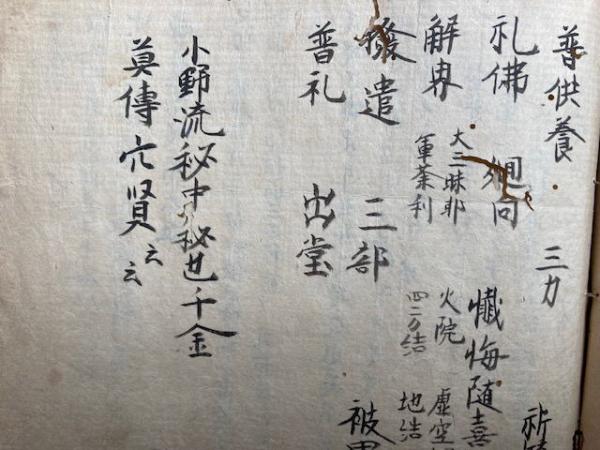 普供養 三力 祈
礼佛 廻向 懺悔随喜
解界 大三昧耶 火院 虚空
軍荼利 四方結 地結
撥遣 三部 被
普礼 出堂
小野流秘中ノ秘也千金
莫傳穴賢云云